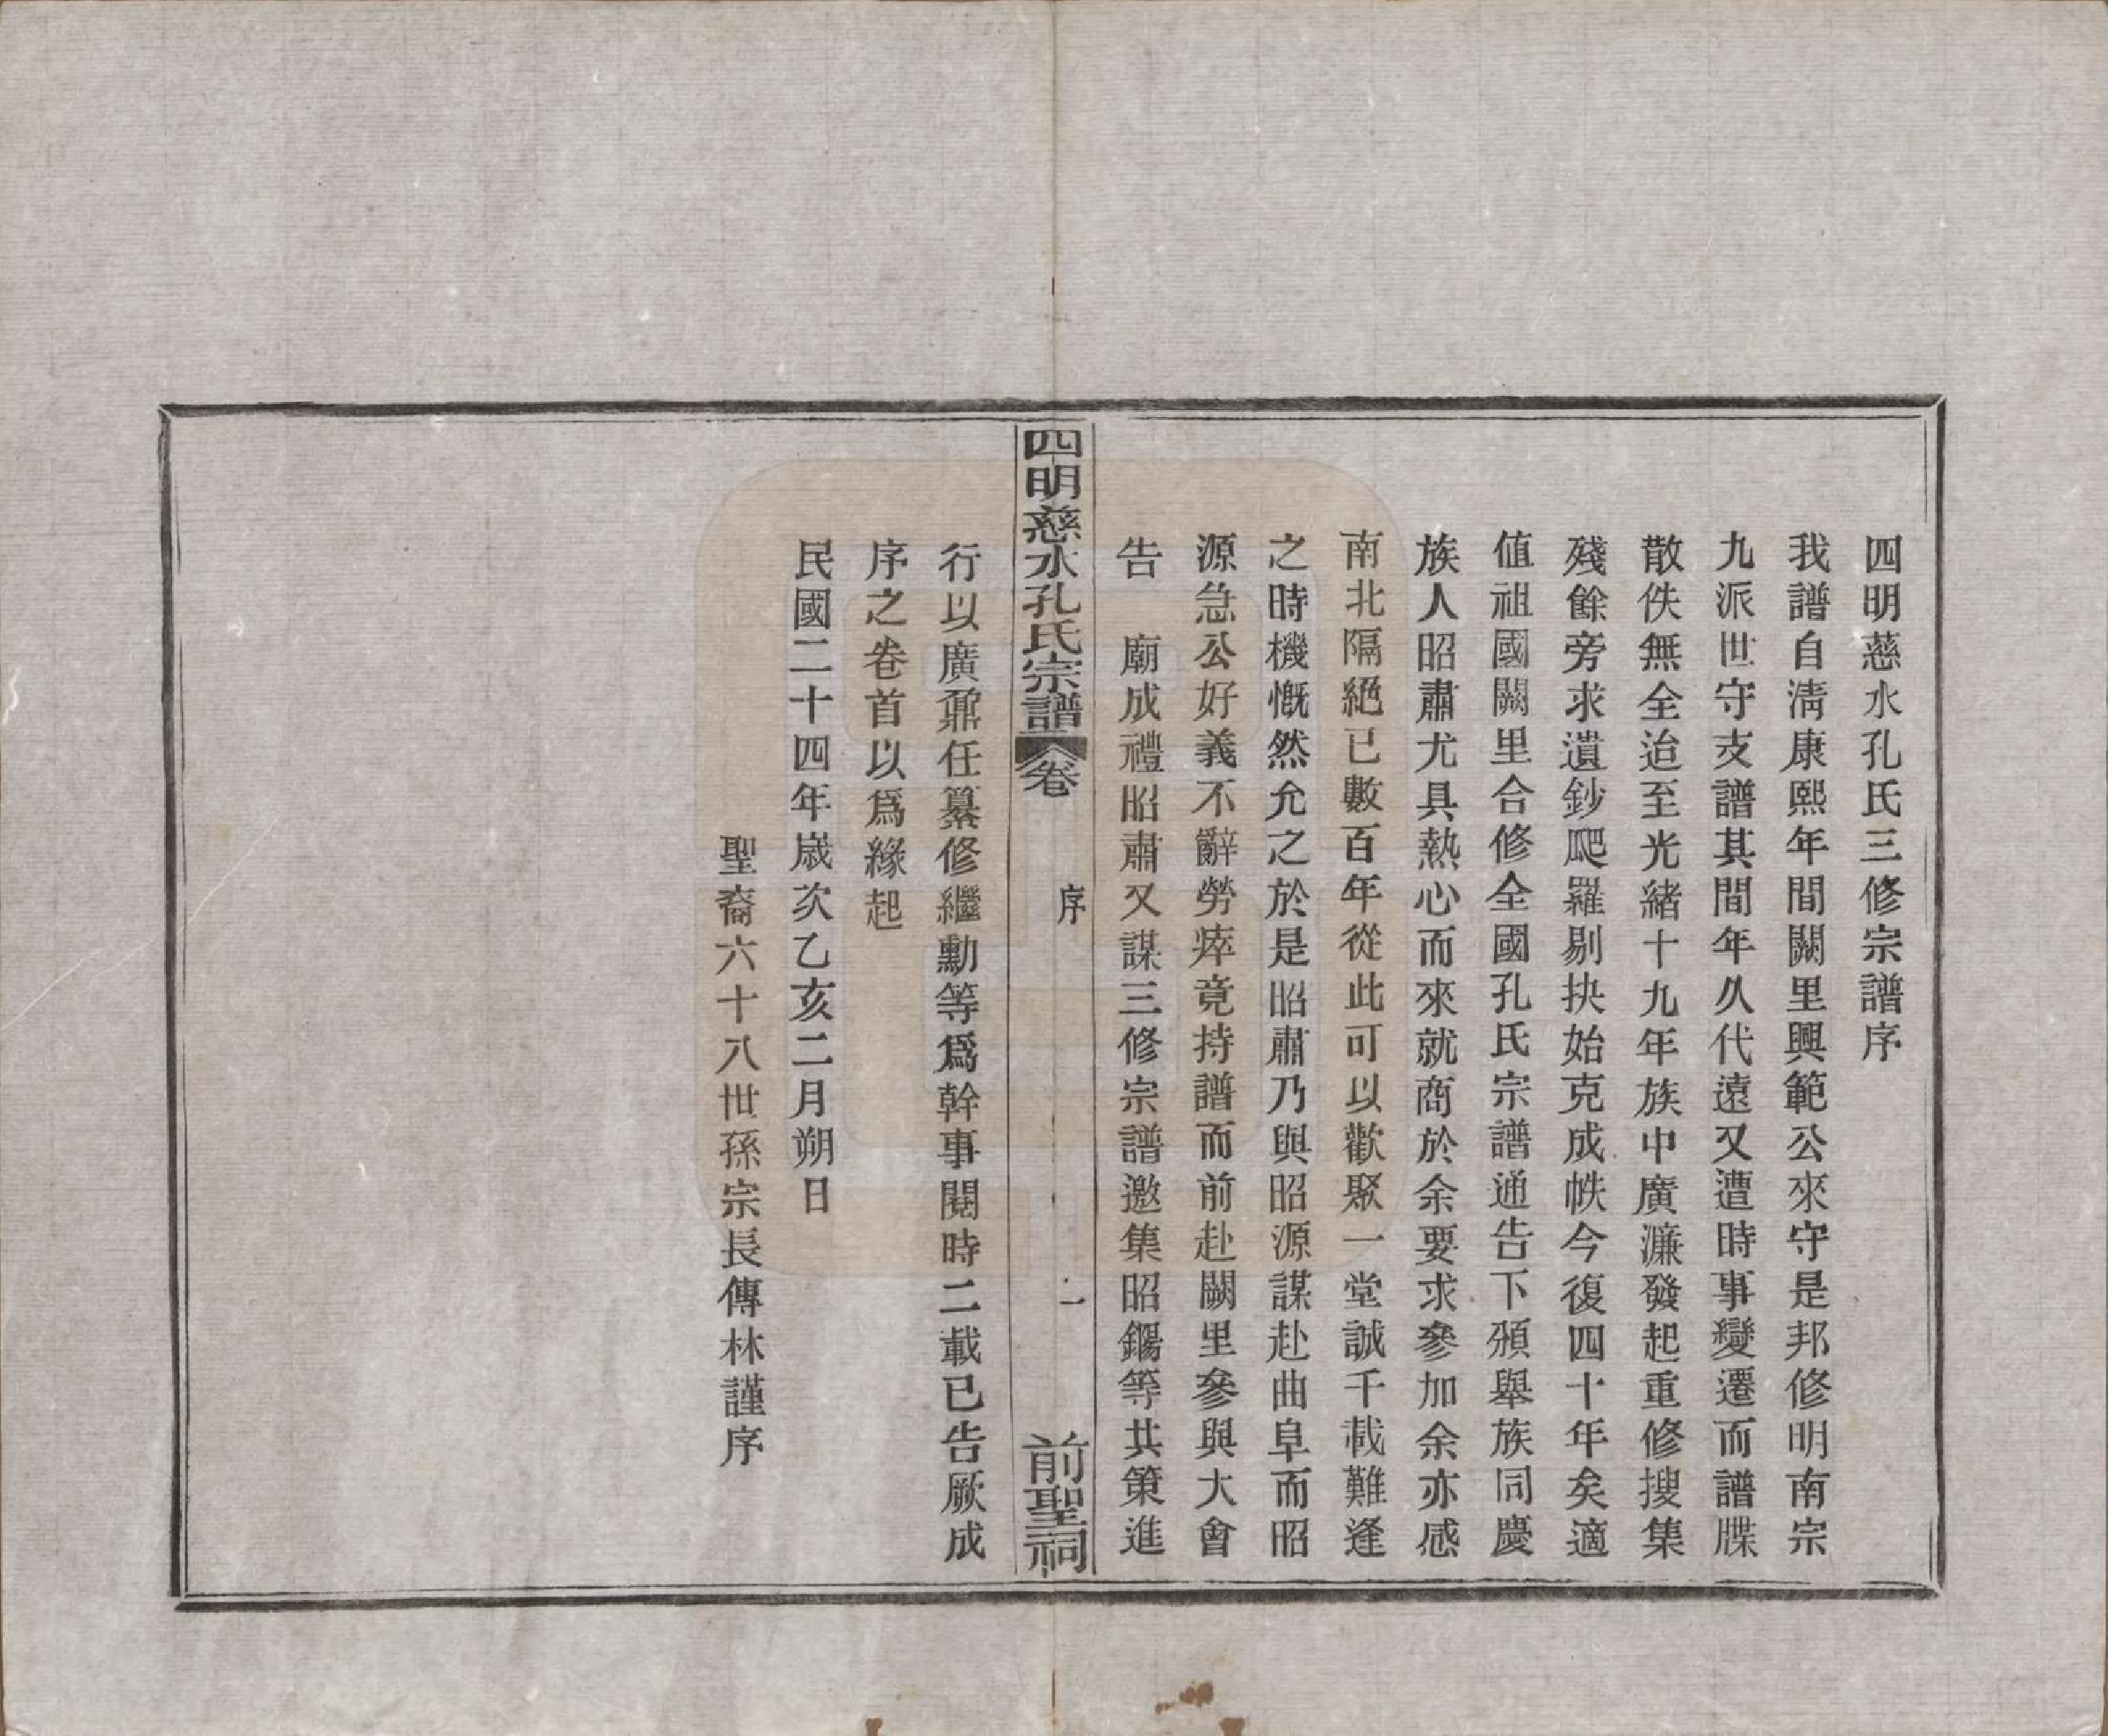 四明慈水孔氏三修宗譜序
我譜自淸康熙年間闕里興範公來守是邦修明南宗
九派世守支譜其間年久代遠又遭時事變遷而譜牒
散佚無全迨至光緖十九年族中廣濂發起重修搜集
殘餘旁求遺鈔爬羅剔抉始克成帙今復四十年矣適
値祖國闕里合修全國孔氏宗譜通吿下頒舉族同慶
族人昭肅尤具熱心而來就商於余要求參加余亦感
南北隔絕已數百年從此可以歡聚一堂誠千載難逢
之時機慨然允之於是昭肅乃與昭源謀赴曲阜而昭
源急公好義不辭勞瘁竟持譜而前赴闕里參與大會
吿　廟成禮昭肅又謀三修宗譜邀集昭錫等共策進
四明慈水孔氏宗譜　卷　序　一　前聖祠
行以廣鼐任纂修繼勳等爲幹事閱時二載已吿厥成
序之卷首以爲緣起
民國二十四年歲次乙亥二月朔日
聖裔六十八世孫宗長傳林謹序